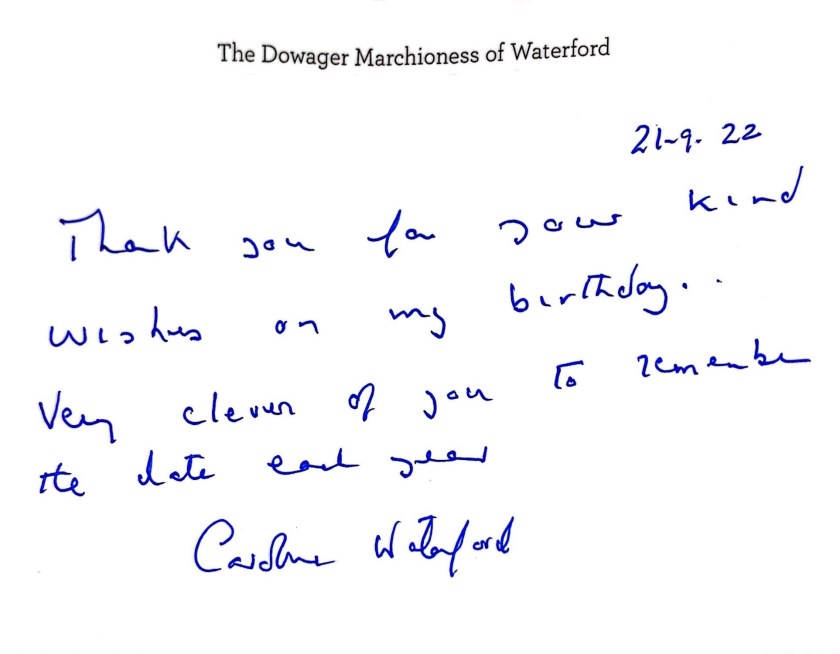 The Dowager Marchioness of Waterford
21-9. 22
Thank you for your kind
wishes on my birthday...
Very clever of you to remember
the date each year
Caroline Waterford